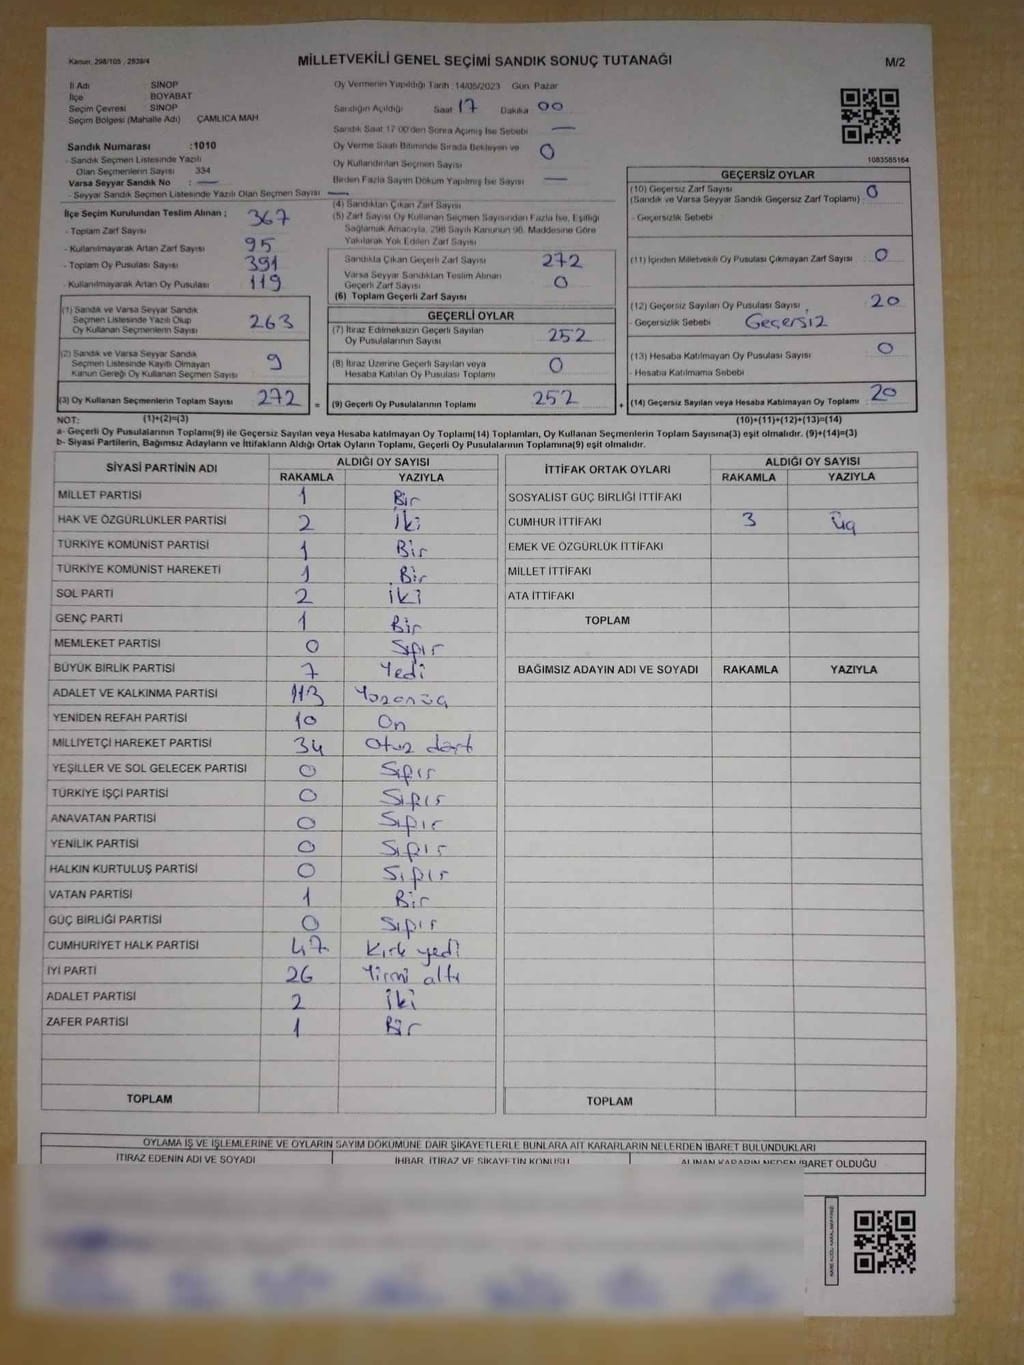 Kanun, 298/105 , 2839/4
MİLLETVEKİLİ GENEL SEÇİMİ SANDIK SONUÇ TUTANAĞI
M/2
İl Adı SİNOP
İlçe BOYABAT
Seçim Çevresi SİNOP
Seçim Bölgesi (Mahalle Adı) ÇAMLICA MAH
Oy Vermenin Yapıldığı Tarih 14/05/2023 Gün Pazar
Sandığın Açıldığı Saat 17 Dakika 00
Sandık Saat 17 00'den Sonra Açılmış İse Sebebi —
Oy Verme Saati Bitiminde Sırada Bekleyen ve
Oy Kullandırılan Seçmen Sayısı 0
Birden Fazla Sayım Döküm Yapılmış İse Sayısı —
1083585164
Sandık Numarası :1010
- Sandık Seçmen Listesinde Yazılı
Olan Seçmenlerin Sayısı 334
Varsa Seyyar Sandık No : —
- Seyyar Sandık Seçmen Listesinde Yazılı Olan Seçmen Sayısı —
İlçe Seçim Kurulundan Teslim Alınan ;
- Toplam Zarf Sayısı 367
- Kullanılmayarak Artan Zarf Sayısı 95
- Toplam Oy Pusulası Sayısı 391
- Kullanılmayarak Artan Oy Pusulası 119
(1) Sandık ve Varsa Seyyar Sandık
Seçmen Listesinde Yazılı Olup
Oy Kullanan Seçmenlerin Sayısı 263
(2) Sandık ve Varsa Seyyar Sandık
Seçmen Listesinde Kayıtlı Olmayan
Kanun Gereği Oy Kullanan Seçmen Sayısı 9
(3) Oy Kullanan Seçmenlerin Toplam Sayısı 272
(4) Sandıktan Çıkan Zarf Sayısı
(5) Zarf Sayısı Oy Kullanan Seçmen Sayısından Fazla İse, Eşitliği
Sağlamak Amacıyla, 298 Sayılı Kanunun 98. Maddesine Göre
Yakılarak Yok Edilen Zarf Sayısı
Sandıkta Çıkan Geçerli Zarf Sayısı 272
Varsa Seyyar Sandıktan Teslim Alınan
Geçerli Zarf Sayısı 0
(6) Toplam Geçerli Zarf Sayısı
GEÇERLİ OYLAR
(7) İtiraz Edilmeksizin Geçerli Sayılan
Oy Pusulalarının Sayısı 252
(8) İtiraz Üzerine Geçerli Sayılan veya
Hesaba Katılan Oy Pusulası Toplamı 0
= (9) Geçerli Oy Pusulalarının Toplamı 252
GEÇERSİZ OYLAR
(10) Geçersiz Zarf Sayısı 0
(Sandık ve Varsa Seyyar Sandık Geçersiz Zarf Toplamı)
- Geçersizlik Sebebi
(11) İçinden Milletvekili Oy Pusulası Çıkmayan Zarf Sayısı 0
(12) Geçersiz Sayılan Oy Pusulası Sayısı 20
- Geçersizlik Sebebi Geçersiz
(13) Hesaba Katılmayan Oy Pusulası Sayısı 0
- Hesaba Katılmama Sebebi
+ (14) Geçersiz Sayılan veya Hesaba Katılmayan Oy Toplamı 20
NOT: (1)+(2)=(3) (10)+(11)+(12)+(13)=(14)
a- Geçerli Oy Pusulalarının Toplamı(9) ile Geçersiz Sayılan veya Hesaba katılmayan Oy Toplamı(14) Toplamları, Oy Kullanan Seçmenlerin Toplam Sayısına(3) eşit olmalıdır. (9)+(14)=(3)
b- Siyasi Partilerin, Bağımsız Adayların ve İttifakların Aldığı Ortak Oyların Toplamı, Geçerli Oy Pusulalarının Toplamına(9) eşit olmalıdır.
SİYASİ PARTİNİN ADI ALDIĞI OY SAYISI
RAKAMLA YAZIYLA
MİLLET PARTİSİ 1 Bir
HAK VE ÖZGÜRLÜKLER PARTİSİ 2 İki
TÜRKİYE KOMÜNİST PARTİSİ 1 Bir
TÜRKİYE KOMÜNİST HAREKETİ 1 Bir
SOL PARTİ 2 iki
GENÇ PARTİ 1 Bir
MEMLEKET PARTİSİ 0 Sıfır
BÜYÜK BİRLİK PARTİSİ 7 Yedi
ADALET VE KALKINMA PARTİSİ 113 Yüzonüç
YENİDEN REFAH PARTİSİ 10 On
MİLLİYETÇİ HAREKET PARTİSİ 34 Otuz dört
YEŞİLLER VE SOL GELECEK PARTİSİ 0 Sıfır
TÜRKİYE İŞÇİ PARTİSİ 0 Sıfır
ANAVATAN PARTİSİ 0 Sıfır
YENİLİK PARTİSİ 0 Sıfır
HALKIN KURTULUŞ PARTİSİ 0 Sıfır
VATAN PARTİSİ 1 Bir
GÜÇ BİRLİĞİ PARTİSİ 0 Sıfır
CUMHURİYET HALK PARTİSİ 47 Kırk yedi
İYİ PARTİ 26 Yirmi altı
ADALET PARTİSİ 2 iki
ZAFER PARTİSİ 1 Bir
TOPLAM
İTTİFAK ORTAK OYLARI ALDIĞI OY SAYISI
RAKAMLA YAZIYLA
SOSYALİST GÜÇ BİRLİĞİ İTTİFAKI
CUMHUR İTTİFAKI 3 Üç
EMEK VE ÖZGÜRLÜK İTTİFAKI
MİLLET İTTİFAKI
ATA İTTİFAKI
TOPLAM
BAĞIMSIZ ADAYIN ADI VE SOYADI RAKAMLA YAZIYLA
TOPLAM
OYLAMA İŞ VE İŞLEMLERİNE VE OYLARIN SAYIM DÖKÜMÜNE DAİR ŞİKAYETLERLE BUNLARA AİT KARARLARIN NELERDEN İBARET BULUNDUKLARI
İTİRAZ EDENİN ADI VE SOYADI İHBAR, İTİRAZ VE ŞİKAYETİN KONUSU ALINAN KARARIN NEDEN İBARET OLDUĞU